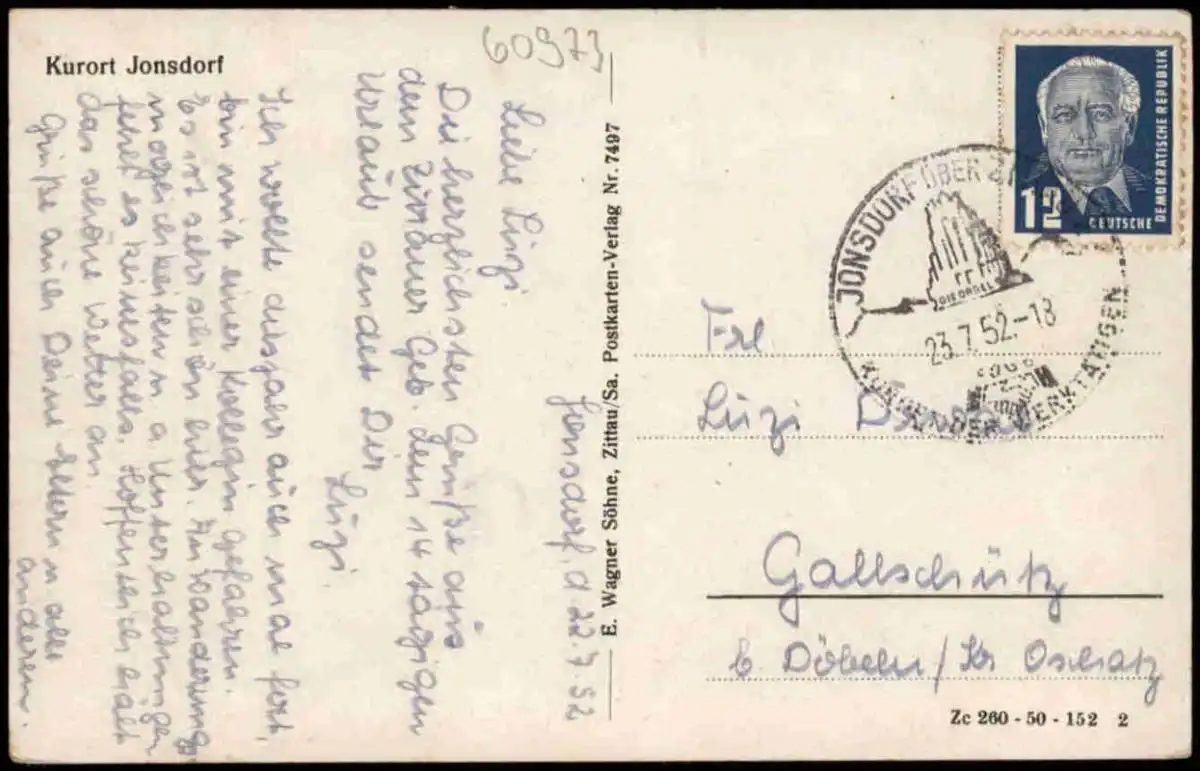 Kurort Jonsdorf
60973
Jonsdorf, d 22.7.52
Liebe Luzi.
Die herzlichsten Grüße aus
dem Zittauer Geb. dem 14 tägigen
Urlaub sendet Dir
Luzi.
Ich wollte diesjahr auch mal fort,
bin mit einer Kollegin gefahren.
Es ist sehr schön hier. An Wanderungs
möglichkeiten u. a. Unterhaltungen
fehlet es keinesfalls. Hoffentlich hält
das schöne Wetter an.
Grüße auch Deine Eltern u alle
anderen.
E. Wagner Söhne, Zittau/Sa. Postkarten-Verlag Nr. 7497
12
DEUTSCHE
DEMOKRATISCHE REPUBLIK
JONSDORF ÜBER
DIE ORGEL
23.7.52.-18
KURORT DER WERKTÄTIGEN
Frl
Luzi
Gallschütz
b Döbeln/Kr Oschatz
Zc 260 - 50 - 152 2